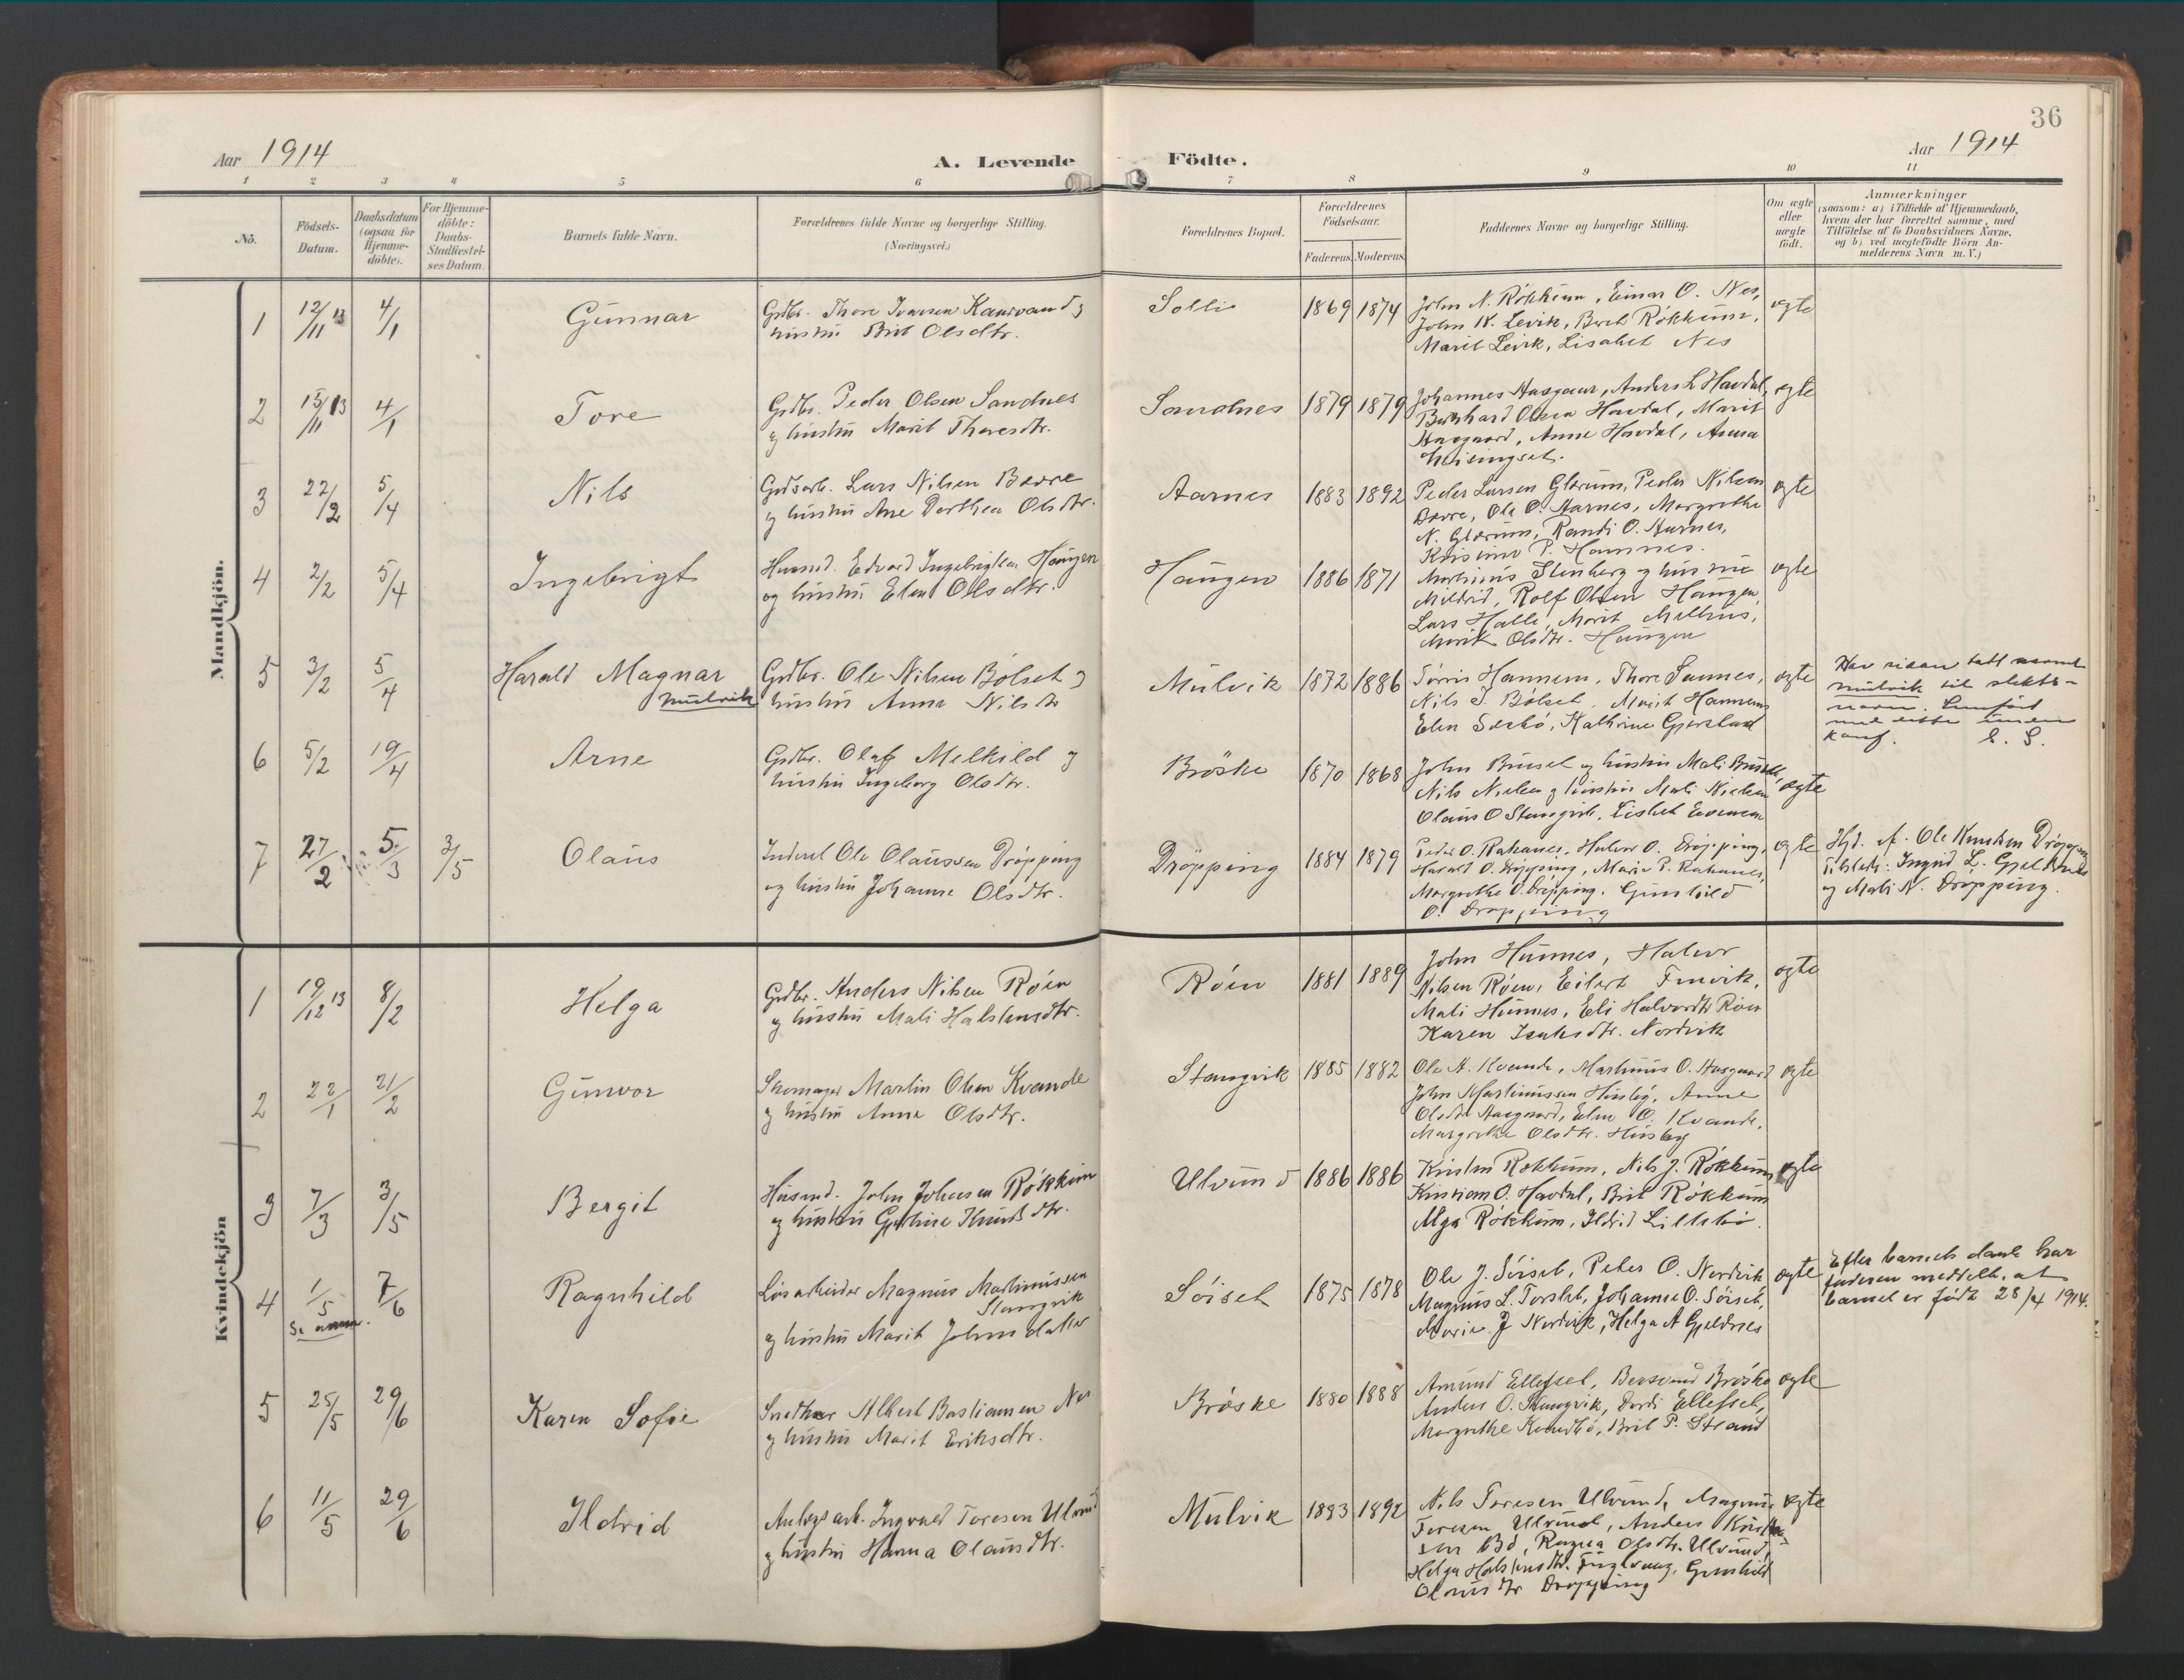 36
Aar 1914
A. Levende Födte.
Aar 1914
1 2 3 4 5 6 7 8 9 10 11
No.
Födsels-Datum.
Daabsdatum (ogsaa for Hjemme-döbte).
For Hjemme-döbte: Daabs-Stadfæstel-ses Datum.
Barnets fulde Navn.
Forældrenes fulde Navne og borgerlige Stilling.
(Næringsvei.)
Forældrenes Bopæl.
Forældrenes Födselsaar.
Faderens. Moderens.
Faddernes Navne og borgerlige Stilling.
Om ægte eller uægte födt.
Anmærkninger
(saasom: a) i Tilfælde af Hjemmedaab,
hvem der har forrettet samme, med
Tilföielse af to Daabsvidners Navne,
og b) ved uægtefödte Börn An-
melderens Navn m. V.)
Mandkjön.
1 12/11 13 4/1 Gunnar
Grdbr. Thore Iversen Kansvand og
hustru Brit Olsdtr.
Solli 1869 1874
John N. Rökkum, Einar O. Nes,
John K. Levik, Berit Rökkum,
Marit Levik, Lisabet Nes
ægte
2 15/11 13 4/1 Tore
Grdbr. Peder Olsen Sandnes
og hustru Marit Thoresdtr.
Sandnes 1879 1879
Johannes Aasgaar, Anders L Havdal,
Bernhard Olsen Havdal, Marit
Aasgaard, Anne Havdal, Anna
ægte
3 22/2 5/4 Nils
Grdsarb. Lars Nilsen Bævre
og hustru Ane Dorthea Olsdtr.
Aarnes 1883 1892
Peder Larsen Glærum, Peder Nilsen
Bævre, Ole O. Aarnes, Margrethe
N. Glærum, Randi O. Aarnes,
Kristine P. Hamnes.
ægte
4 2/2 5/4 Ingebrigt
Husmd. Edvard Ingebrigtsen Haugen
og hustru Elen Olsdtr.
Haugen 1886 1871
Martinus Stenberg og hustru
Mildrid, Rolf Olsen Haugen,
Lars Halle, Marit Melhus,
Marit Olsdtr. Haugen
ægte
5 3/2 5/4 Harald Magnar
Mulvik
Grdbr. Ole Nilsen Bölset og
hustru Anne Nilsdtr
Mulvik 1872 1886
Torris Hannem, Thore Sannes,
Nils J. Bölset, Marit Hannem
Elen Sæsbö, Kathrine Gjerstad
ægte
Har siden tatt navnet
Mulvik til slekts-
navn. Innfört
med dette
6 5/2 19/4 Arne
Grdbr. Olaf Melkild og
hustru Ingeborg Olsdtr.
Bröske 1870 1868
John Bruset og hustru Mali Bruset,
Nils Nielsen og hustru Mali Nielsen
Olaus O Stangvik, Lisbet Evensen
ægte
7 27/2 5/3 3/5 Olaus
Inderst Ole Olaussen Dröpping
og hustru Johanne Olsdtr.
Dröpping 1884 1879
Peder O. Rakanes, Halvor O. Dröpping,
Harald O. Dröpping, Marie P. Rakanes,
Margrethe O. Dröpping, Gunhild
O. Dröpping
ægte
Hjd. af Ole Knutsen Dröpping
Tilstede: Ingrid L. Gjeldnes
og Mali N. Dröpping.
Kvindekjön
1 19/12 13 8/2 Helga
Grdbr. Anders Nilsen Röen
og hustru Mali Halstensdtr.
Röen 1881 1889
John Hünnes, Halvor
Nilsen Röen, Eilert
Mali Hünnes, Eli Halvordtr Röen
Karen Isaksdtr. Nordvik
ægte
2 22/1 21/2 Gunvor
Skomager Martin Olsen Kvande
og hustru Anne Olsdtr.
Stangvik 1885 1882
Ole A. Kvande, Martinus O. Aasgaard
John Martinussen Husby, Anne
Olsdtr Aasgaard, Elen O. Kvande,
Margrethe Olsdtr. Husby
ægte
3 7/3 3/5 Bergit
Husmd. John Johnsen Rökkum
og hustru Gjertine Knutsdtr.
Ulvund 1886 1886
Kristen Rökkum, Nils J. Rökkum
Kristian O. Havdal, Brit Rökkum
Olga Rökkum, Ildrid Lillebö.
ægte
4 1/5 7/6 Ragnhild
Se anm.
Lösarbeider Magnus Martinussen
Stangvik
og hustru Marit Johnsdatter
Söiset 1875 1878
Ole J. Söiset, Peter O. Nordvik
Magnus L. Torset, Johanne O. Söiset,
Marie J Nordvik, Helga A Gjeldnes
ægte
Efter barnets daab har
faderen meddelt, at
barnet er födt 28/4 1914.
5 25/5 29/6 Karen Sofie
Snedker Albert Bastiansen Nes
og hustru Marit Eriksdtr.
Bröske 1880 1888
Amund Ellefset, Bersvend Bröske
Anders O. Stangvik, Dordi Ellefset,
Margrethe Kvendbö, Brit P. Strand
ægte
6 11/5 29/6 Ildrid
Anlægsarb. Ingvald Toresen Ulvund
og hustru Hanna Olausdtr.
Mulvik 1893 1892
Nils Toresen Ulvund, Magnus
Toresen Ulvund, Anders Kristen-
sen Bö, Ragna Olsdtr. Ulvund,
Helga Halstensdtr. Fuglevaag, Gunhild
Olausdtr Dröpping
ægte